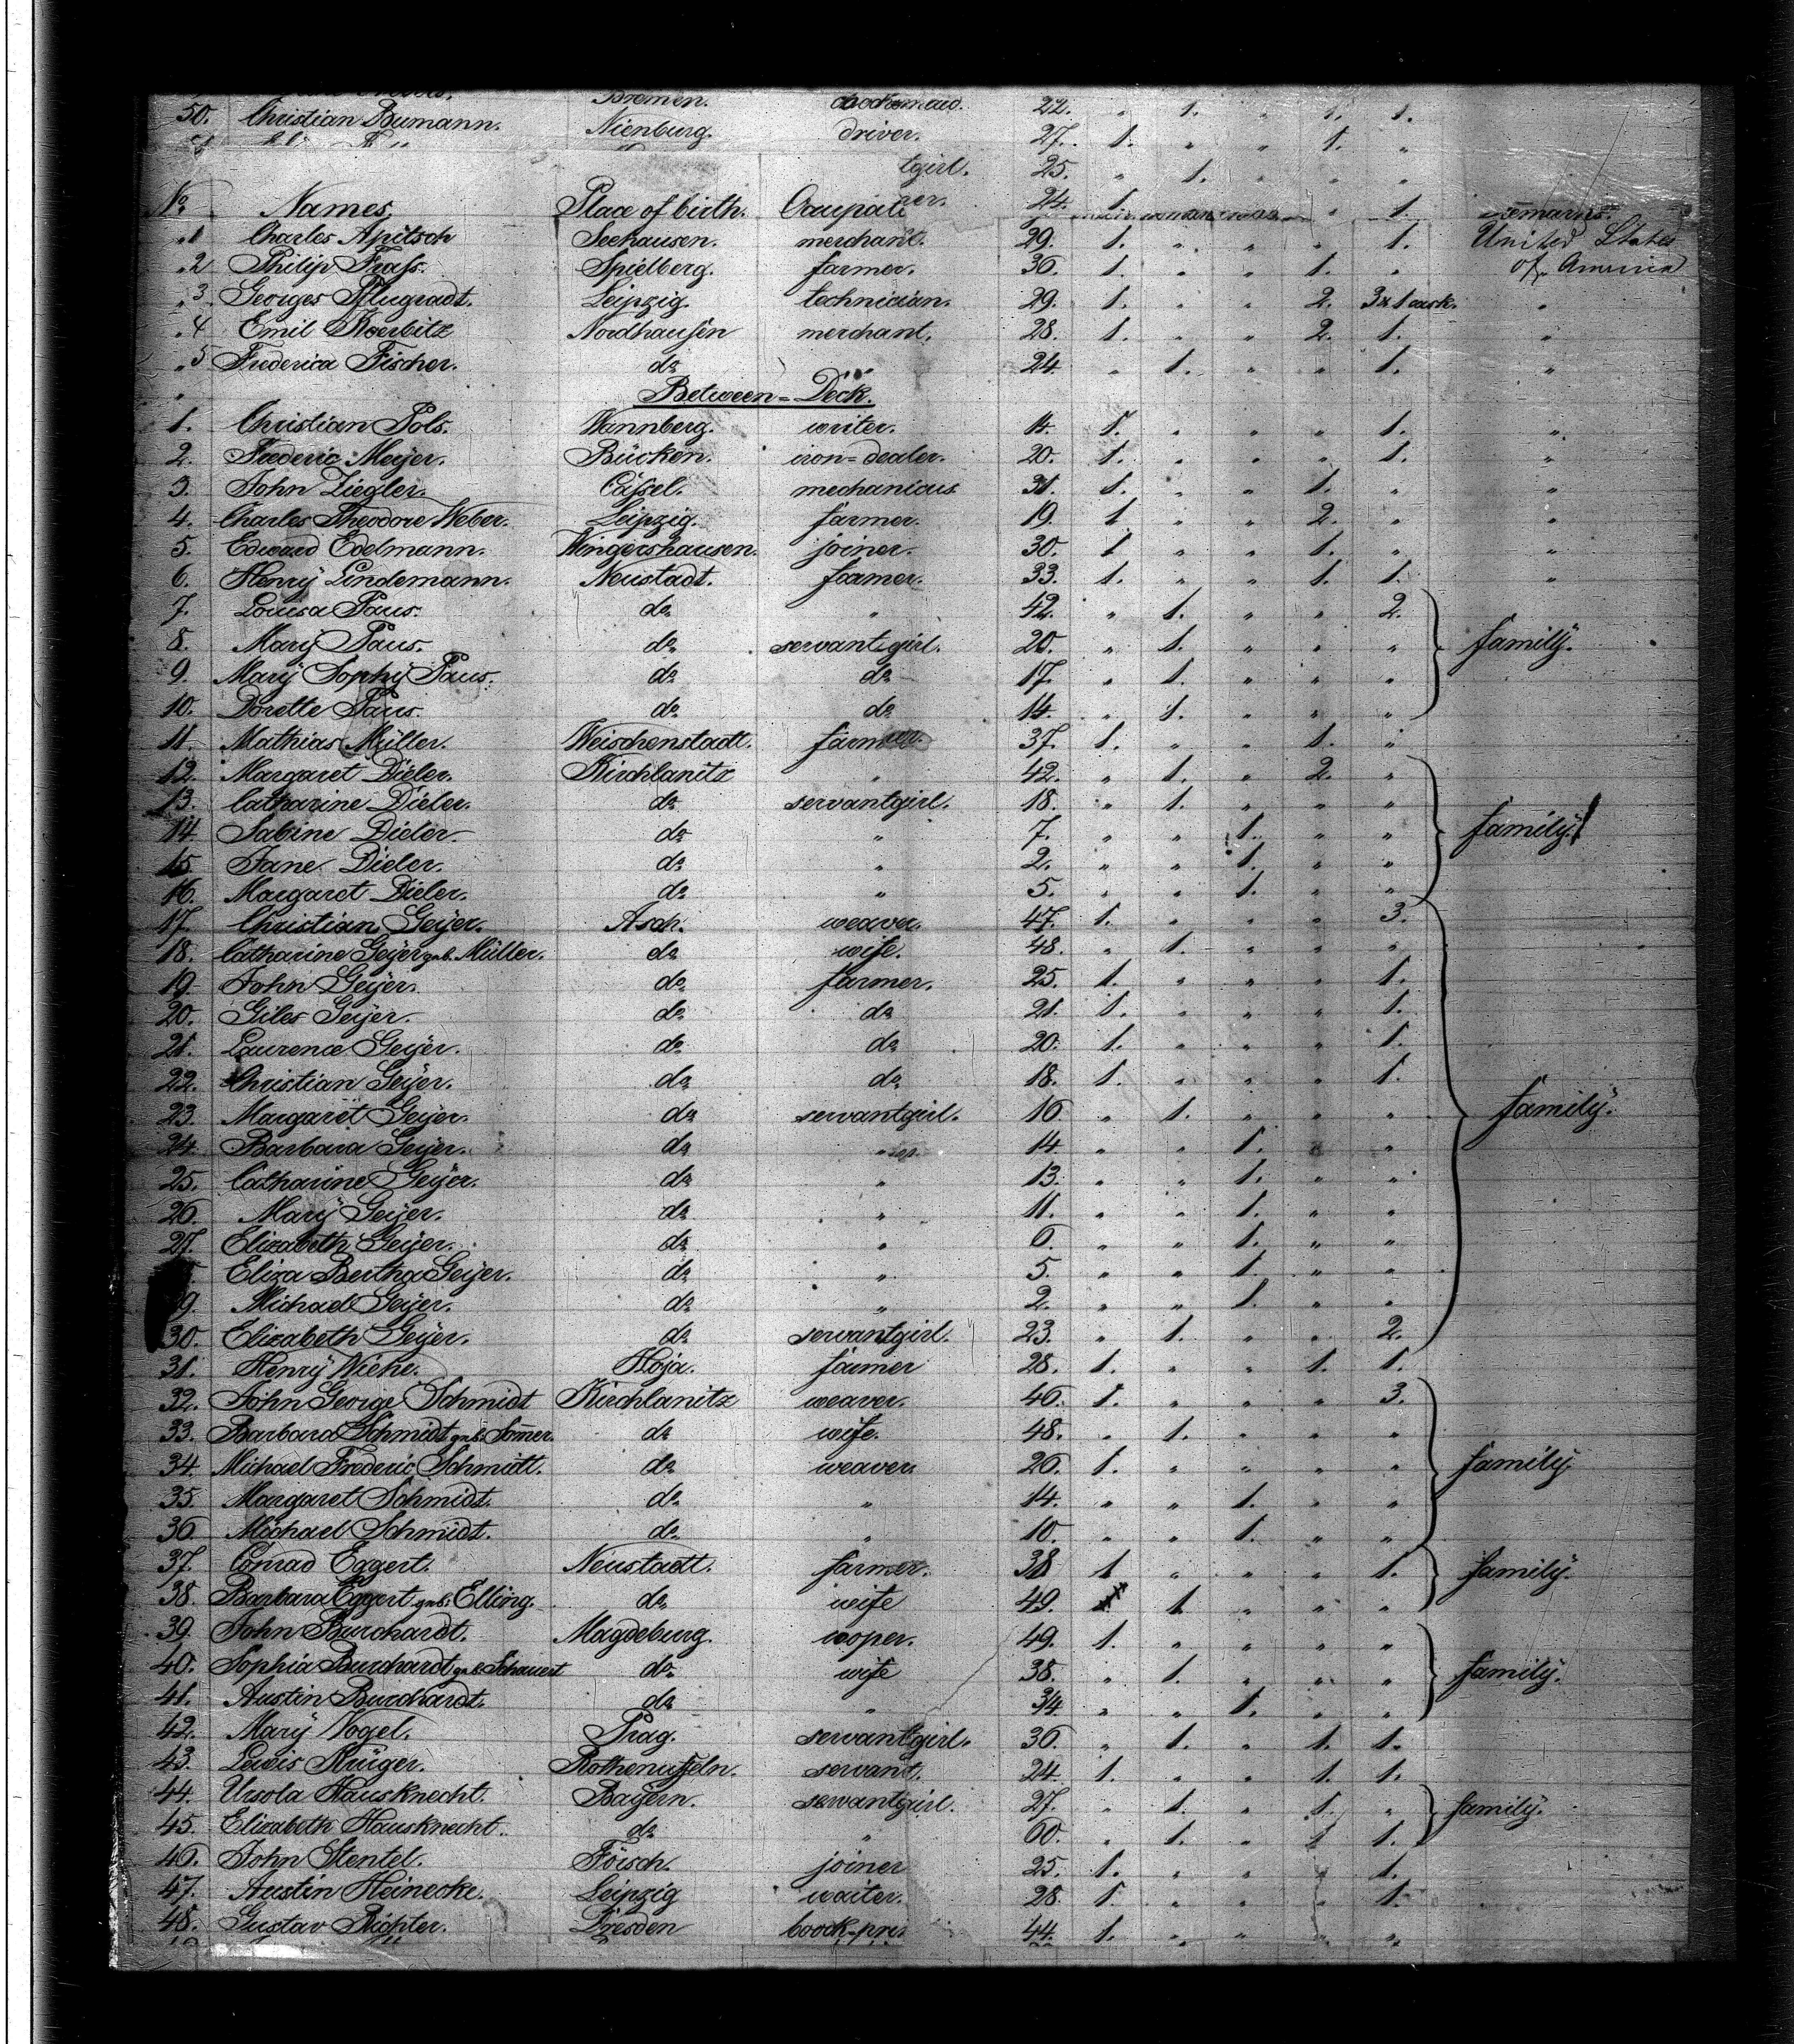 Bremen. 22. " 1. " 1. 1.
50. Christian Bumann. Nienburg. driver. 27. 1. " " 1. "
tgirl. 25. " 1. " " "
No. Names. Place of birth. Occupati 24. 1. " 1.
"1 Charles Apitsch Seehausen. merchant. 29. 1. " " " 1. United States
"2 Philip Frass. Spielberg. farmer. 36. 1. " " 1. " of America
"3 Georges Pflugradt. Leipzig. technician. 29. 1. " " 2. 3 & 1 cask. "
"4 Emil Koerbitz Nordhausen merchant. 28. 1. " " 2. 1. "
"5 Frederica Fischer. do " 24. " 1. " " 1. "
Between=Deck.
1. Christian Pols. Wannberg. writer. 14. 1. " " " 1. "
2. Frederic Meijer. Bücken. iron=dealer. 20. 1. " " " 1. "
3. John Ziegler. Cassel. mechanicus 31. 1. " " 1. " "
4. Charles Theodore Weber. Leipzig. farmer. 19. 1 " " 2. " "
5. Edward Edelmann. Wingershausen. joiner. 30. 1 " " 1. " "
6. Henrÿ Lindemann. Neustadt. farmer. 33. 1. " " 1. 1. "
7. Louisa Paus. do " 42. " 1. " " 2.
8. Marÿ Paus. do servantgirl. 20. " 1. " " " familÿ.
9. Marÿ Sophÿ Paus. do do 17. " 1. " " "
10. Dorette Paus. do do 14. " 1. " " "
11. Mathias Müller. Weischenstadt. farmer. 37. 1. " " 1. "
12. Margaret Dieler. Kirchlanitz " 42. " 1. " 2. "
13. Catharine Dieler. do servantgirl. 18. " 1. " " "
14. Sabine Dieler. do " 7. " " 1. " " familÿ.
15. Jane Dieler. do " 2. " " 1. " "
16. Margaret Dieler. do " 5. " " 1. " "
17. Christian Geijer. Asch. weaver. 47. 1. " " " 3.
18. Catharine Geijer geb. Müller. do wife. 48. " 1. " " "
19. John Geijer. do farmer. 25. 1. " " " 1.
20. Giles Geijer. do do 21. 1. " " " 1.
21. Laurence Geijer. do do 20. 1. " " " 1.
22. Christian Geijer. do do 18. 1. " " " 1.
23. Margaret Geijer. do servantgirl. 16 " 1. " " " familÿ.
24. Barbara Geijer. do " 14. " " 1. " "
25. Catharine Geijer. do " 13. " " 1. " "
26. Marÿ Geijer. do " 11. " " 1. " "
27. Elizabeth Geijer. do " 6. " " 1. " "
Eliza Bertha Geijer. do " 5. " " 1. " "
29. Michael Geijer. do " 2. " " 1. " "
30. Elizabeth Geijer. do servantgirl. 23. " 1. " " 2.
31. Henrÿ Wiehe. Hoja. farmer 28. 1. " " 1. 1.
32. John George Schmidt Kirchlanitz weaver. 46. 1. " " " 3.
33. Barbara Schmidt geb. Som̄er. do wife. 48. " 1. " " "
34. Michael Frederic Schmidt. do weaver. 26. 1. " " " " familÿ.
35. Margaret Schmidt. do " 14. " " 1. " "
36. Michael Schmidt. do " 10. " " 1. " "
37. Conrad Eggert. Neustadt. farmer. 38 1 " " " 1. familÿ.
38. Barbara Eggert geb. Elling. do wife 49. 1 " " "
39. John Burchardt. Magdeburg. cooper. 49. 1. " " " "
40. Sophia Burchardt geb. Schauert do wife 38. " 1. " " " familÿ.
41. Austin Burchardt. do " 3/4. " " 1. " "
42. Marÿ Vogel. Prag. servantgirl. 36. " 1. " 1. 1.
43. Lewis Krüger. Rothenuffeln. servant. 24. 1. " " 1. 1.
44. Ursola Hausknecht. Bayern. servantgirl. 27. " 1. " 1. " familÿ.
45. Elizabeth Hausknecht. do " 60. " 1. " 1 1.
46. John Stentel. Försch. joiner 25. 1. " " " 1.
47. Austin Heinecke. Leipzig waiter. 28. 1. " " " 1.
48. Gustav Richter. Dresden 44. 1. " " " "